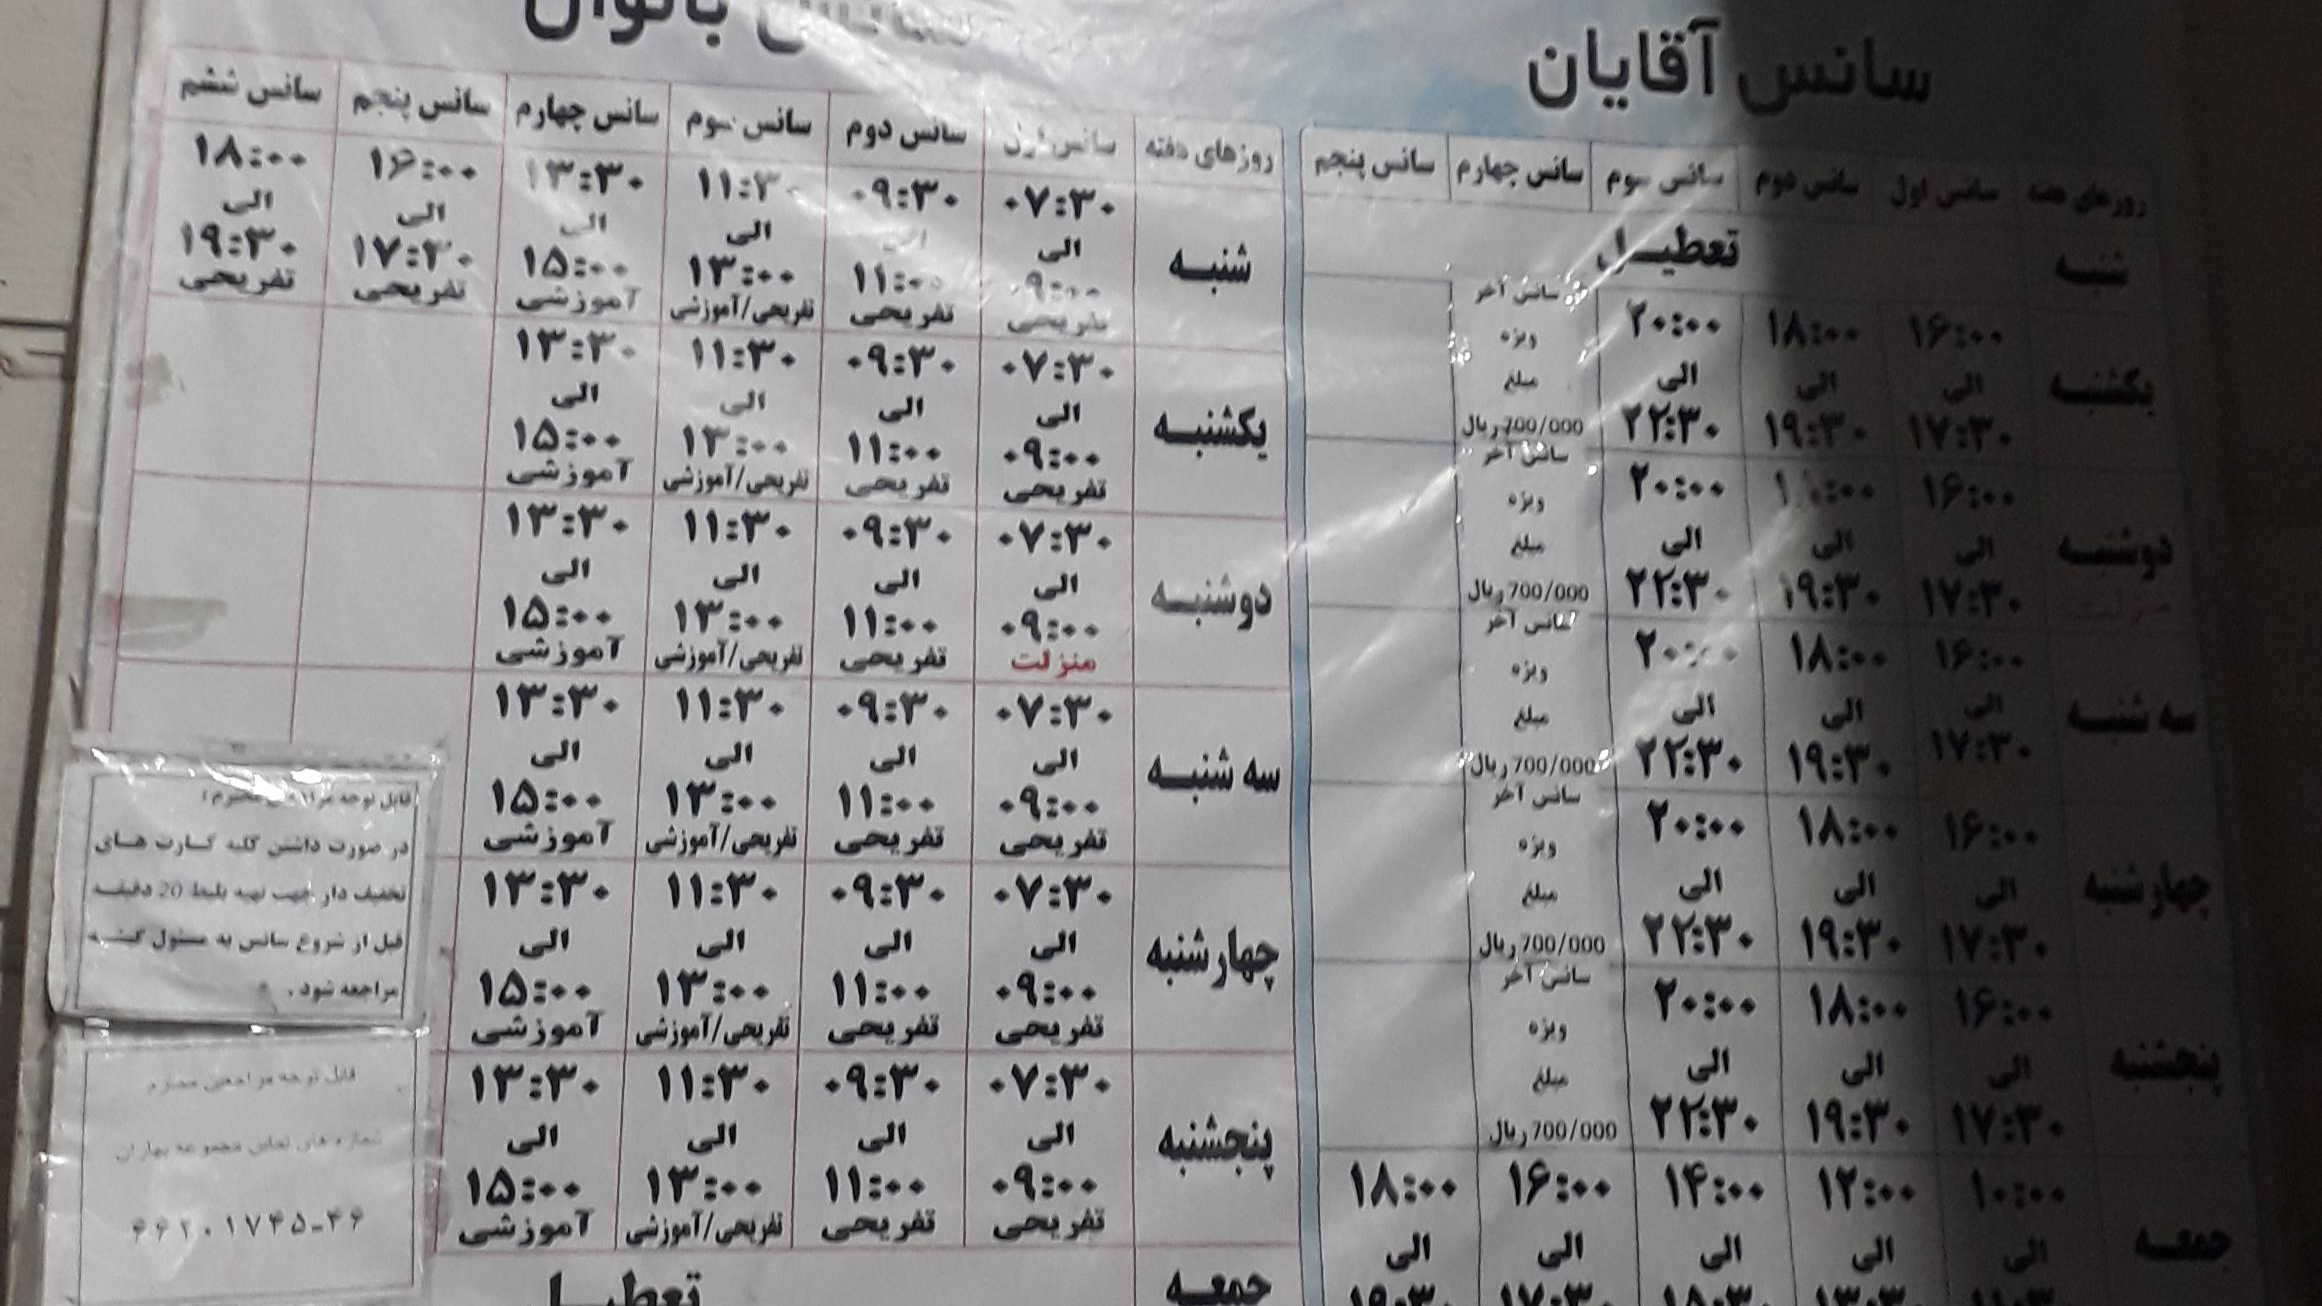 سانس آقایان
روزهای هفته سانس اول سانس دوم سانس سوم سانس چهارم سانس پنجم
شنبـه تعطیـل
یکشنبـه
۱۶:۰۰ الی ۱۷:۳۰
۱۸:۰۰ الی ۱۹:۳۰
۲۰:۰۰ الی ۲۲:۳۰
سانس آخر
ویژه
مبلغ
700/000 ریال
دوشنبـه
منزلت
۱۶:۰۰ الی ۱۷:۳۰
۱۸:۰۰ الی ۱۹:۳۰
۲۰:۰۰ الی ۲۲:۳۰
سانس آخر
ویژه
مبلغ
700/000 ریال
سه شنبـه
۱۶:۰۰ الی ۱۷:۳۰
۱۸:۰۰ الی ۱۹:۳۰
۲۰:۰۰ الی ۲۲:۳۰
سانس آخر
ویژه
مبلغ
700/000 ریال
چهارشنبه
۱۶:۰۰ الی ۱۷:۳۰
۱۸:۰۰ الی ۱۹:۳۰
۲۰:۰۰ الی ۲۲:۳۰
سانس آخر
ویژه
مبلغ
700/000 ریال
پنجشنبه
۱۶:۰۰ الی ۱۷:۳۰
۱۸:۰۰ الی ۱۹:۳۰
۲۰:۰۰ الی ۲۲:۳۰
سانس آخر
ویژه
مبلغ
700/000 ریال
جمعـه
۱۰:۰۰ الی ۱۱:۳۰
۱۲:۰۰ الی ۱۳:۳۰
۱۴:۰۰ الی ۱۵:۳۰
۱۶:۰۰ الی ۱۷:۳۰
۱۸:۰۰ الی ۱۹:۳۰
سانس بانوان
روزهای هفته سانس اول سانس دوم سانس سوم سانس چهارم سانس پنجم سانس ششم
شنبـه
۰۷:۳۰ الی ۰۹:۰۰ تفریحی
۰۹:۳۰ الی ۱۱:۰۰ تفریحی
۱۱:۳۰ الی ۱۳:۰۰ تفریحی/آموزشی
۱۳:۳۰ الی ۱۵:۰۰ آموزشی
۱۶:۰۰ الی ۱۷:۳۰ تفریحی
۱۸:۰۰ الی ۱۹:۳۰ تفریحی
یکشنبـه
۰۷:۳۰ الی ۰۹:۰۰ تفریحی
۰۹:۳۰ الی ۱۱:۰۰ تفریحی
۱۱:۳۰ الی ۱۳:۰۰ تفریحی/آموزشی
۱۳:۳۰ الی ۱۵:۰۰ آموزشی
دوشنبـه
۰۷:۳۰ الی ۰۹:۰۰ منزلت
۰۹:۳۰ الی ۱۱:۰۰ تفریحی
۱۱:۳۰ الی ۱۳:۰۰ تفریحی/آموزشی
۱۳:۳۰ الی ۱۵:۰۰ آموزشی
سه شنبـه
۰۷:۳۰ الی ۰۹:۰۰ تفریحی
۰۹:۳۰ الی ۱۱:۰۰ تفریحی
۱۱:۳۰ الی ۱۳:۰۰ تفریحی/آموزشی
۱۳:۳۰ الی ۱۵:۰۰ آموزشی
چهارشنبه
۰۷:۳۰ الی ۰۹:۰۰ تفریحی
۰۹:۳۰ الی ۱۱:۰۰ تفریحی
۱۱:۳۰ الی ۱۳:۰۰ تفریحی/آموزشی
۱۳:۳۰ الی ۱۵:۰۰ آموزشی
پنجشنبه
۰۷:۳۰ الی ۰۹:۰۰ تفریحی
۰۹:۳۰ الی ۱۱:۰۰ تفریحی
۱۱:۳۰ الی ۱۳:۰۰ تفریحی/آموزشی
۱۳:۳۰ الی ۱۵:۰۰ آموزشی
جمعـه تعطیـل
قابل توجه مراجعین محترم!
در صورت داشتن کلیه کارت های
تخفیف دار جهت تهیه بلیط 20 دقیقه
قبل از شروع سانس به مسئول گیشه
مراجعه شود.
قابل توجه مراجعین محترم
شماره های تماس مجموعه بهاران
۶۶۲۰۱۷۴۵-۴۶